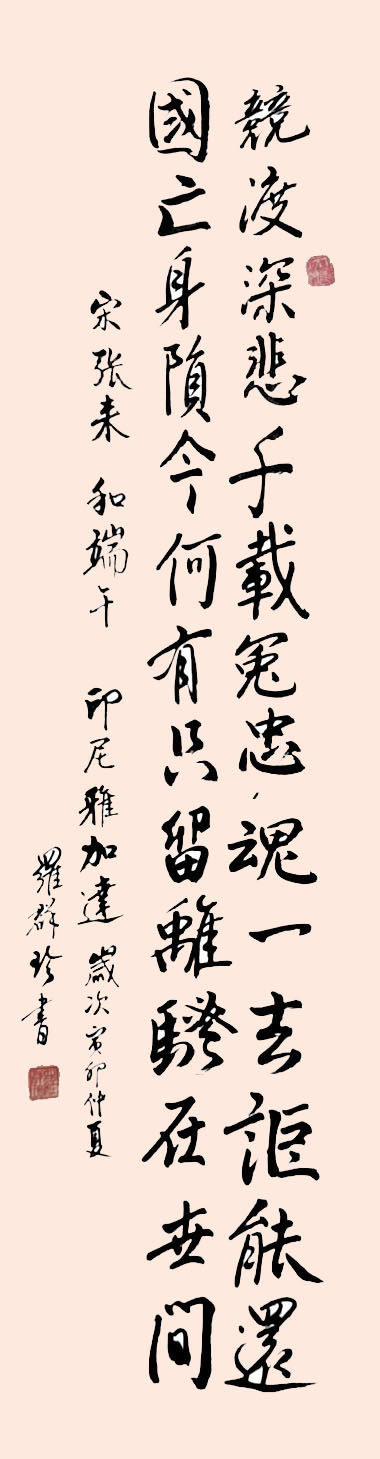 競渡深悲千載冤忠魂一去詎能還
國亡身隕今何有只留離騷在世間
宋張耒 和端午 印尼雅加達 歲次寅卯仲夏
羅群珍書